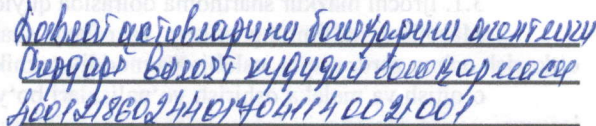 Давлат активларини бошқариш агентлиги
Сирдарё вилоят ҳудудий бошқармаси
400121860244017041140021001